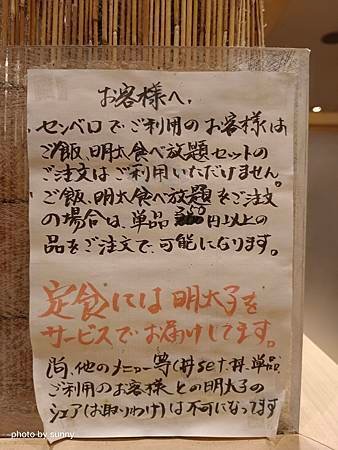 お客様へ、
センベロでご利用のお客様は
ご飯、明太食べ放題セットの
ご注文はご利用いただけません。
ご飯、明太食べ放題をご注文
の場合は、単品 円以上の
品をご注文で、可能になります。
定食には明太子を
サービスでお届けしてます。
尚、他のメニュー等(丼set.丼.単品.
ご利用のお客様との明太子の
シェア(お取りわけ)は不可になってます
photo by sunny